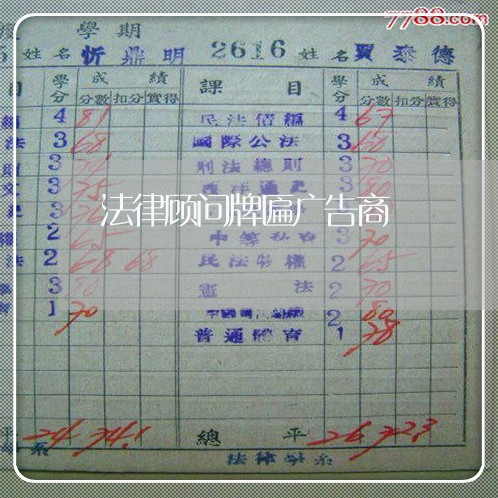 7788.com
學期
姓名 忻鼎明 2616 姓名 賈泰德
目 學分 成績 課目 學分 成績
分數 扣分 實得 分數 扣分 實得
4 81 民法債編 4 67
法 3 68 國際公法 3 60
3 刑法總則 3 70
3 75 西洋通史 3
法律顾问牌匾广告商
2 65 3 70
法 2 68 68 民法物權 2 65
3 80 憲法 2 70
1 70 2 80
普通體育 1 78
平 24 74.1 總平 26 72.3
系 法律學系